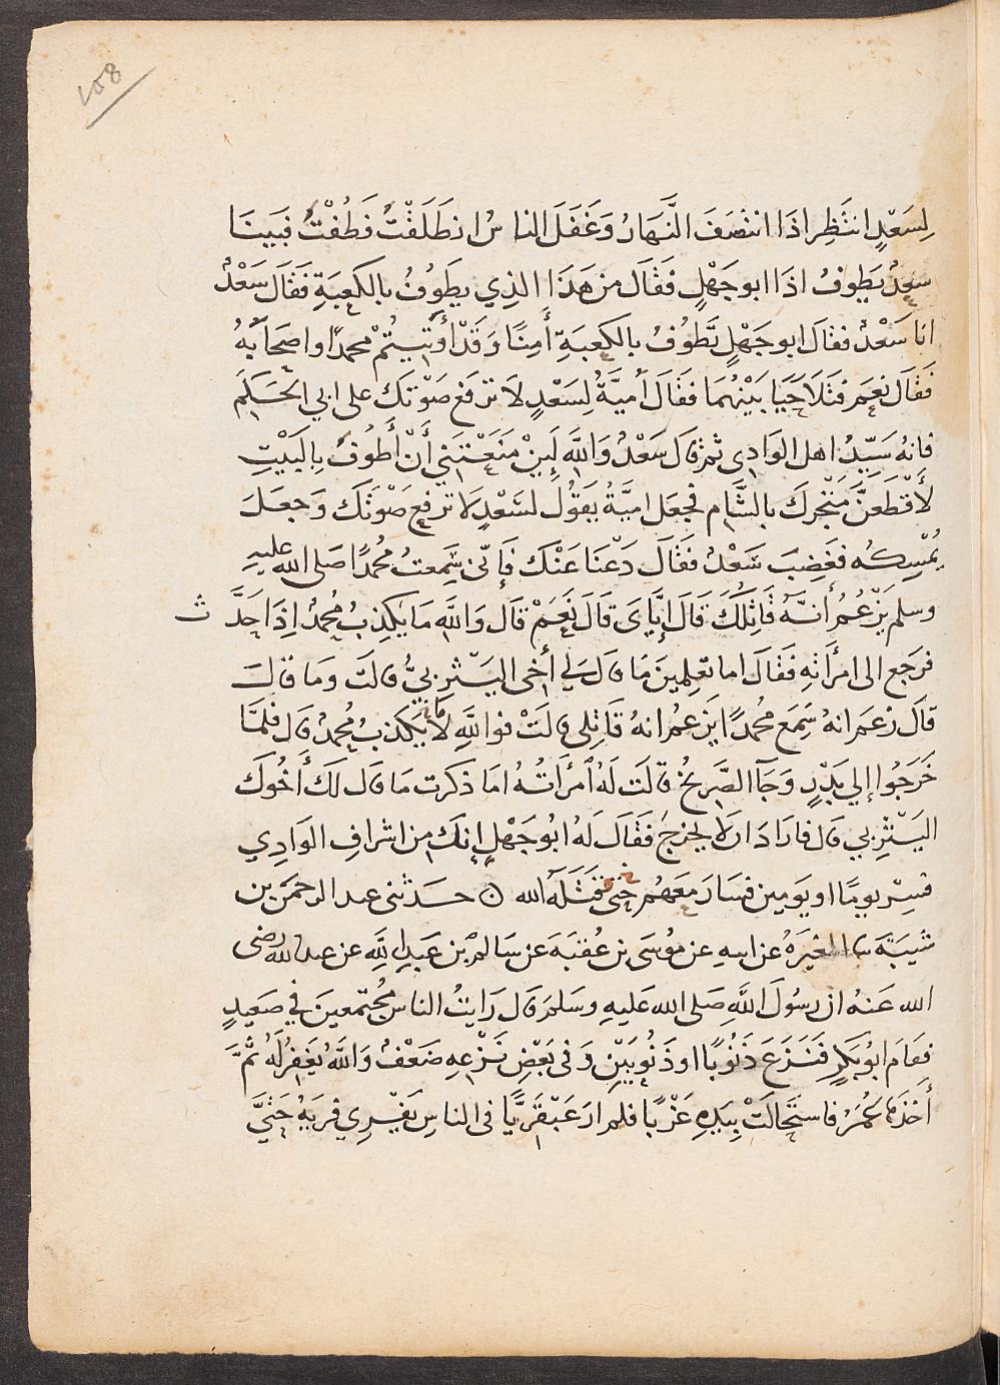 ١٥٨
لِسَعْدٍ انتَظِر اذَا انتَصَفَ النَّهَارُ وَغَفَلَ الناسُ انطَلَقْتُ فَطُفْتُ فَبَينَا
سَعدٌ يَطوفُ اذَا ابو جَهْلٍ فَقَال من هَذَا الذِي يطَوفُ بالكَعبَةِ فَقَال سَعْدٌ
انا سَعْدٌ فقال ابو جَهْلٍ تَطوُفُ بالكَعبَةِ أَمِنًا وَقَدْ أَوَيتُمْ محمدًا واصحَابَهُ
فَقَال نعَم فَتَلَاحَيَا بَيْنَهُمَا فقَال أُميَّةُ لِسَعْدٍ لَا ترفَع صَوْتَكَ على ابي الحَكَمِ
فانهُ سَيِّدُ اهل الوَادِى ثم قَال سَعْدٌ وَاللَّهِ لَيِنْ مَنَعْتَنِي أَنْ أَطُوفَ بِالبَيْتِ
لَأَقْطَعَنَّ مَتْجَرَكَ بالشَّام فجعَل اميَّةُ يقَولُ لسَعْدٍ لَا ترفع صَوْتَكَ وَجعَلَ
يُمْسِكُه فغَضِبَ سَعْدٌ فَقَالَ دَعْنَا عَنْكَ فَإِنّى سَمِعتُ مُحمدًا صَلى الله عليهِ
وسلم يَزْعُمُ أَنَّهُ قَاتِلُكَ قَالَ إِيَّاىَ قَالَ نَعَمْ قَال وَاللَّهِ مَا يَكذِبُ مُحمدٌ إِذَا حَدَّث
فرَجَع الى امرَأَتهِ فَقَالَ اما تعلِمينَ مَا قَالَ لِي أَخى اليَثْرِبيُّ قالَت وَمَا قالَ
قَالَ زعَم انهُ سَمِعَ مُحمدًا يَزعمُ انهُ قَاتِلى قالَتْ فوَاللَّهِ مَا يَكذبُ مُحمدٌ قَال فلمَّا
خَرَجُوا إِلي بَدْرٍ وَجَآ الصَّرِيخُ قَالَت لَهُ امرَأَتُهُ امَا ذكرت مَا قَال لَكَ أَخُوكَ
اليَثْرِبي قَال فارَادَ ان لَا يخرجَ فَقَالَ لَهُ ابُو جَهْلٍ إِنكَ من اشرَافِ الوَادِي
فسِرْ يومًا او يَومين فسَارَ معَهُم حتى قَتَلَهُ الله ۞ حَدَثنى عبد الرحمن بن
شَيبَةَ ... المغيرَةُ عن ابيهِ عن مُوسَى بن عُقبَةَ عن سَالمِ بن عَبدِ اللَّهِ عن عبد الله رضى
الله عَنهُ ان رسُولَ اللَّهِ صَلى الله عَليهِ وَسَلمَ قَال رَايتُ الناس مُجتمعينَ في صَعيدٍ
فقَامَ ابُو بَكرٍ فَنَزَعَ ذَنُوبًا او ذَنُوبَيْنِ وَفى بَعْضِ نَزْعِهِ ضَعْفٌ وَاللَّهُ يَغفِرُ لَهُ ثُمَّ
أَخَذهَا عُمَرُ فاستَحَالَتْ بِيَدِهِ غَرْبًا فلم ارَ عَبْقَرِيًّا فى الناسِ يَفْرِي فرِيَهُ حَتَّي